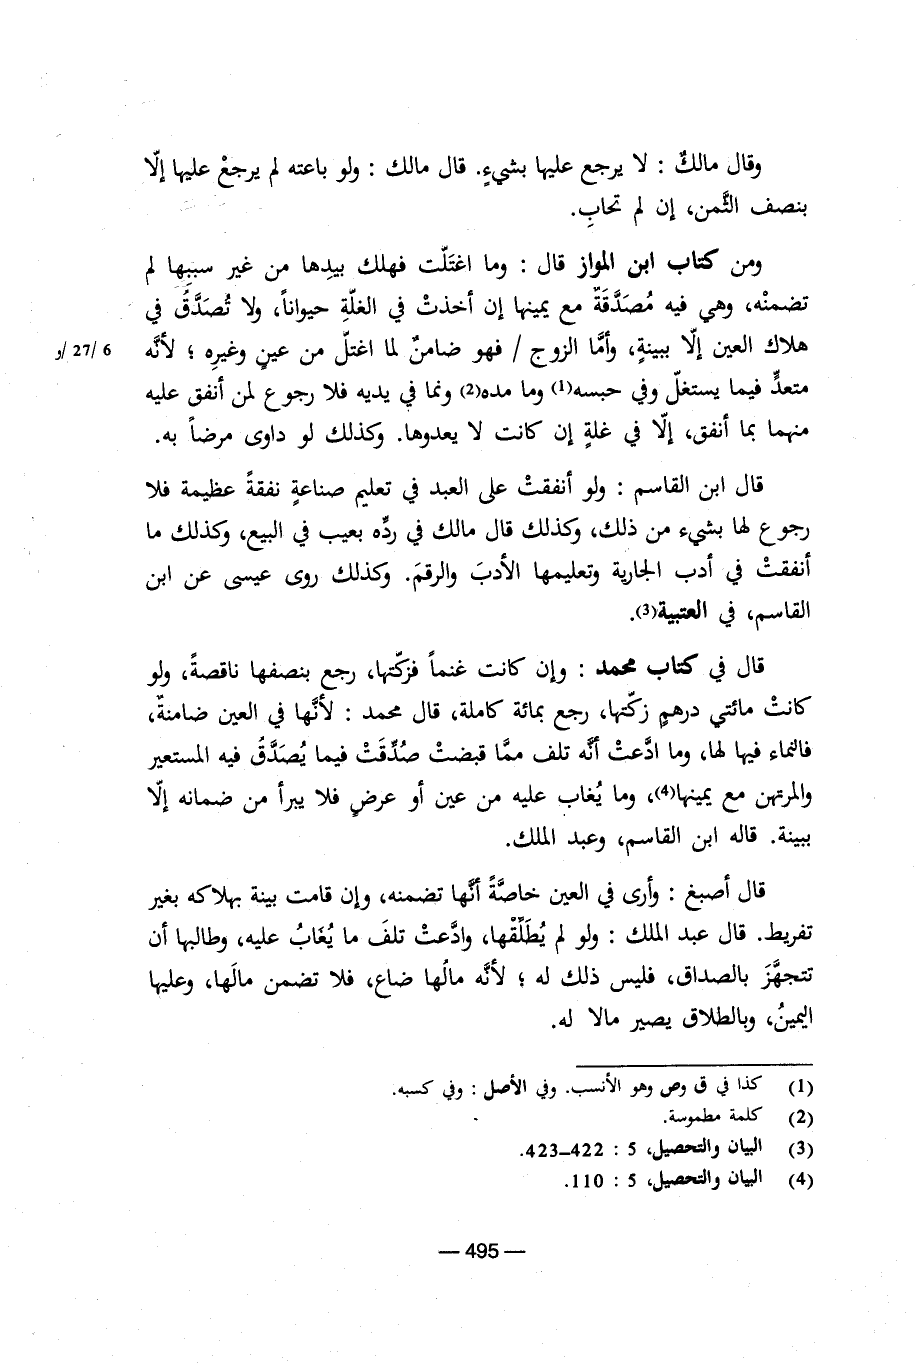 وقال مالكٌ : لا يرجع عليها بشيءٍ. قال مالك : ولو باعته لم يرجعْ عليها إلّا
بنصف الثَّمن، إن لم تحابِ.
ومن كتاب ابن المواز قال : وما اغتَلَّت فهلك بيدِها من غير سببِها لم
تضمنْه، وهي فيه مُصَدَّقَةٌ مع يمينها إن أخذتْ في الغلّةِ حيواناً، ولا تُصَدَّقُ في
هلاك العين إلّا ببينةٍ، وأمَّا الزوج / فهو ضامنٌ لما اغتلّ من عينٍ وغيرِه ؛ لأنَّه 6 /27/و
متعدٍّ فيما يستغلّ وفي حبسه(1) وما مده(2) ونما في يديه فلا رجوع لمن أنفق عليه
منهما بما أنفق، إلّا في غلةٍ إن كانت لا يعدوها. وكذلك لو داوى مرضاً به.
قال ابن القاسم : ولو أنفقتْ على العبد في تعليم صناعةٍ نفقةً عظيمة فلا
رجوع لها بشيء من ذلك، وكذلك قال مالك في ردِّه بعيب في البيع، وكذلك ما
أنفقتْ في أدب الجارية وتعليمها الأدبَ والرقمَ. وكذلك روى عيسى عن ابن
القاسم، في العتبية(3).
قال في كتاب محمد : وإن كانت غنماً فزكّتها، رجع بنصفها ناقصةً، ولو
كانتْ مائتي درهمٍ زكّتها، رجع بمائة كاملة، قال محمد : لأنَّها في العين ضامنةٌ،
فالنماء فيها لها، وما ادَّعتْ أنَّه تلف ممَّا قبضتْ صُدِّقَتْ فيما يُصَدَّقُ فيه المستعير
والمرتهن مع يمينها(4)، وما يُغاب عليه من عين أو عرضٍ فلا يبرأ من ضمانه إلّا
ببينة. قاله ابن القاسم، وعبد الملك.
قال أصبغ : وأرى في العين خاصَّةً أنَّها تضمنه، وإن قامت بينة بهلاكه بغير
تفريط. قال عبد الملك : ولو لم يُطَلِّقْها، وادَّعتْ تلفَ ما يُغَابُ عليه، وطالبها أن
تتجهَّزَ بالصداق، فليس ذلك له ؛ لأنَّه مالُها ضاع، فلا تضمن مالَها، وعليها
اليمينُ، وبالطلاق يصير مالا له.
(1) كذا في ق وص وهو الأنسب. وفي الأصل : وفي كسبه.
(2) كلمة مطموسة.
(3) البيان والتحصيل، 5 : 422–423.
(4) البيان والتحصيل، 5 : 110.
— 495 —